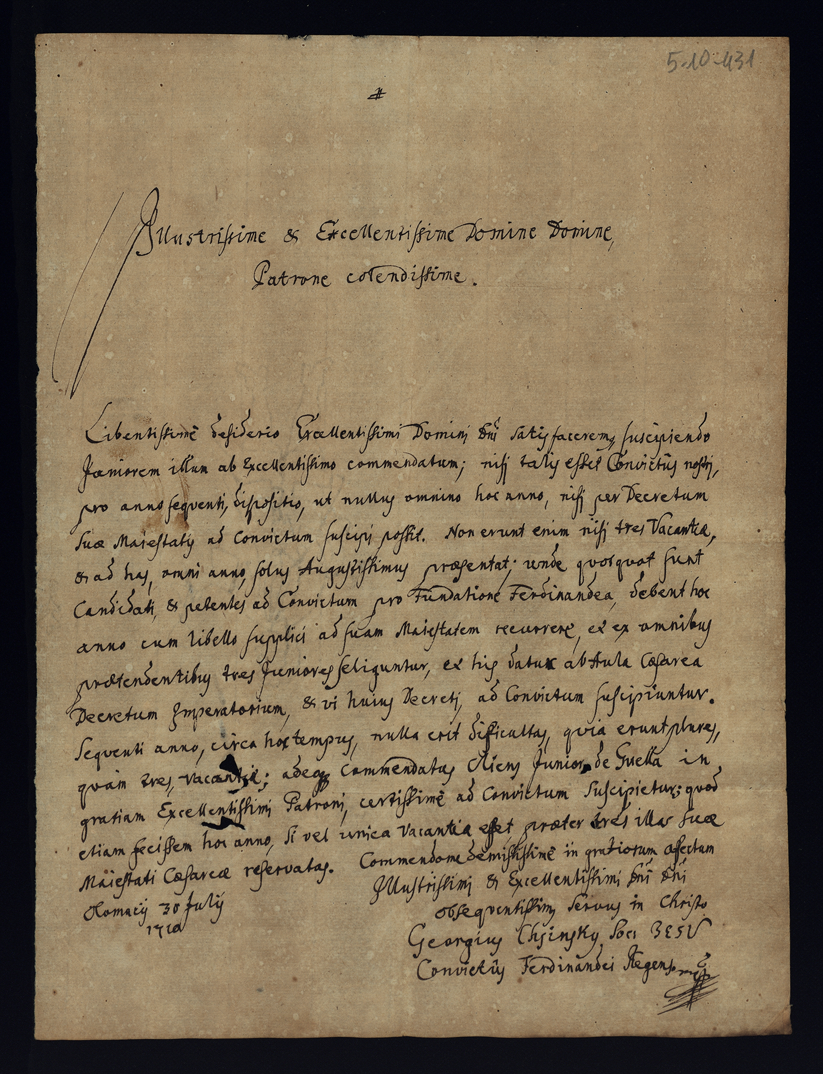 5-10-431
#
Illustrissime & Excellentissime Domine Domine,
Patrone colendissime.
Libentissimè desiderio Excellentissimi Domini Dñi satisfacerem, suscipiendo
Juniorem illum ab Excellentissimo commendatum; nisi talis esset Convictûs nostri,
pro anno sequenti, dispositio, ut nullus omnino hoc anno, nisi per Decretum
Suæ Maiestatis ad Convictum suscipi possit. Non erunt enim nisi tres Vacantiæ,
& ad has, omni anno, solus Augustissimus præsentat; unde quotquot sunt
Candidati, & petentes ad Convictum pro Fundatione Ferdinandea, debent hoc
anno cum libello supplici ad suam Maiestatem recurrere, et ex omnibus
prætendentibus tres Juniores seliguntur, et his datur ab Aula Cæsarea
Decretum Imperatorium, & vi huius Decreti, ad Convictum suscipiuntur.
Sequenti anno, circa hoc tempus, nulla erit difficultas, quia erunt plures,
quàm tres, vacantiæ; adeoq commendatus Cliens Junior de Guella in
gratiam Excellentissimi Patroni, certissimè ad Convictum suscipietur: quod
etiam fecissem hoc anno, si vel unica Vacantia esset præter tres illas suæ
Maiestati Cæsareæ reservatas. Commendome demississimè in gratiorum affectum
Illustrissimi & Excellentissimi Dñi Dñi
Olomucij 30 July
1710
obsequentissimus servus in Christo
Georgius Soci JESU
Convictûs Ferdinandei Regens